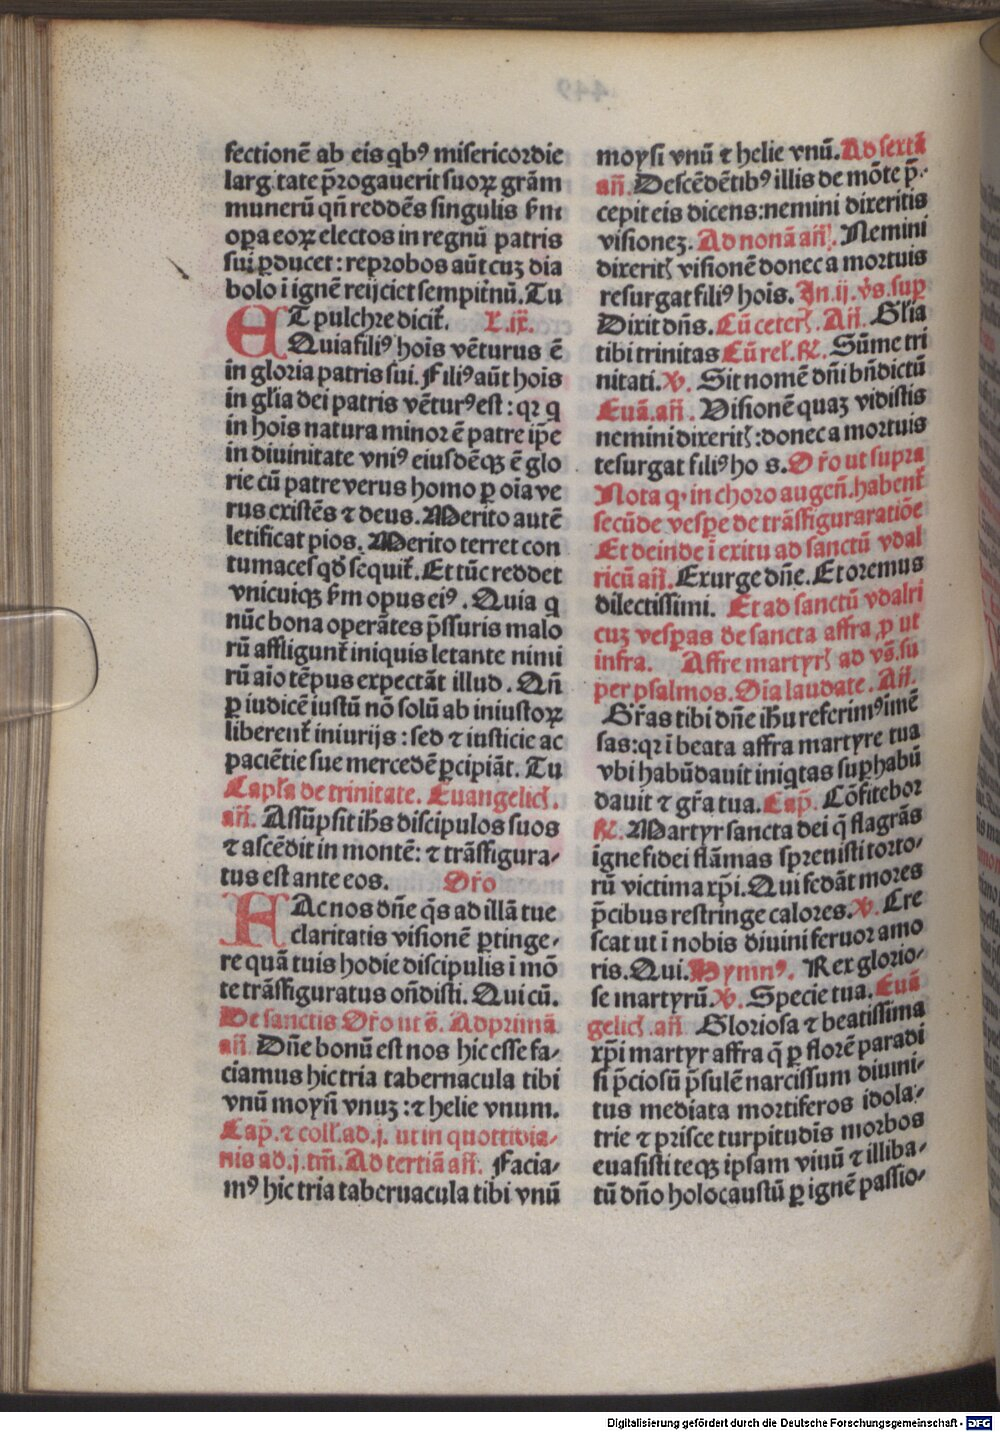 fectionē ab eis qbꝰ misericordie
larg tate p̄rogauerit suoꝝ grām
munerū qn̄ reddēs singulis ẜm
opa eoꝝ electos in regnū patris
sui ꝓducet : reprobos aūt cuꝫ dia
bolo ī ignē reijciet sempit̄nū. Tu
ET pulchre dicit̄. L. ix̄.
Quia filiꝰ hoīs vēturus ē
in gloria patris sui. Filiꝰ aūt hoīs
in gl̄ia dei patris vēturꝰ est : qꝛ q
in hoīs natura minor ē patre ip̄e
in diuinitate vniꝰ eiusdēqꝫ ē glo
rie cū patre verus homo ꝑ oīa ve
rus existēs ⁊ deus. Merito autē
letificat pios. Merito terret con
tumaces qd̄ sequit̄. Et tūc reddet
vnicuiqꝫ ẜm opus eiꝰ. Quia q
nūc bona operātes p̄ssuris malo
rū affligunt̄ iniquis letante nimi
rū aīo tēpus expectāt illud. Qn̄
ꝑ iudicē iustū nō solū ab iniustoꝝ
liberent̄ iniurijs : sed ⁊ iusticie ac
paciētie sue mercedē ꝑcipiāt. Tu
Capl̄a de trinitate. Euangelicꝭ.
an̄. Assūpsit ih̄s discipulos suos
⁊ ascēdit in montē: ⁊ trāsfigura-
tus est ante eos. Or̄o
FAc nos dn̄e q̄s ad illā tue
claritatis visionē ꝑtinge-
re quā tuis hodie discipulis ī mō
te trāsfiguratus on̄disti. Qui cū.
De sanctis Or̄o ut s̄. Ad primā
an̄. Dn̄e bonū est nos hic esse fa-
ciamus hic tria tabernacula tibi
vnū moysi vnuꝫ : ⁊ helie vnum.
Cap̄. ⁊ coll̄. ad .j. ut in quottidia-
nis ad .j. tm̄. Ad tertiā an̄. Facia-
mꝰ hic tria tabernacula tibi vnū
moysi vnū ⁊ helie vnū. Ad sextā
an̄. Descēdētibꝰ illis de mōte p̄-
cepit eis dicens: nemini dixeritis
visioneꝫ. Ad nonā an̄. Nemini
dixeritꝭ visionē donec a mortuis
resurgat filiꝰ hoīs. In .ij. vs̄. sup
Dixit dn̄s. Cū ceterꝭ. An̄. Gl̄ia
tibi trinitas Cū rel̄. ℟. Sūme tri
nitati. ℣. Sit nomē dn̄i bn̄dictū
Euā. an̄. Visionē quaꝫ vidistis
nemini dixeritꝭ : donec a mortuis
tesurgat filiꝰ ho s. Or̄o ut supra
Nota qꝙ in choro augen̄. habent̄
secūde vesp̄e de trāsfiguraratiōe
Et deinde ī exitu ad sanctū vdal
ricū an̄. Exurge dn̄e. Et oremus
dilectissimi. Et ad sanctū vdalri
cuꝫ vesꝑas de sancta affra ꝓ ut
infra. Affre martyrꝭ ad vs̄. su
per psalmos. Oīa laudate. An̄.
Gr̄as tibi dn̄e ih̄u referimꝰ īmē
sas: qꝛ ī beata affra martyre tua
vbi habūdauit iniqtas suꝑhabū
dauit ⁊ gr̄a tua. Cap̄. Cōfitebor
℟. Martyr sancta dei q̄ flagrās
igne fidei flāmas spreuisti torto-
rū victima xp̄i. Qui fedāt mores
p̄cibus restringe calores. ℣. Cre
scat ut ī nobis diuini feruor amo
ris. Qui. Hymnꝰ. Rex glorio-
se martyrū. ℣. Specie tua. Euā
gelicꝭ. an̄. Gloriosa ⁊ beatissima
xp̄i martyr affra q̄ ꝑ florē paradi
si p̄ciosū p̄sulē narcissum diuini-
tus mediata mortiferos idola-
trie ⁊ prisce turpitudīs morbos
euasisti teqꝫ ipsam viuū ⁊ illiba-
tū dn̄o holocaustū ꝑ ignē passio-
Digitalisierung gefördert durch die Deutsche Forschungsgemeinschaft - DFG